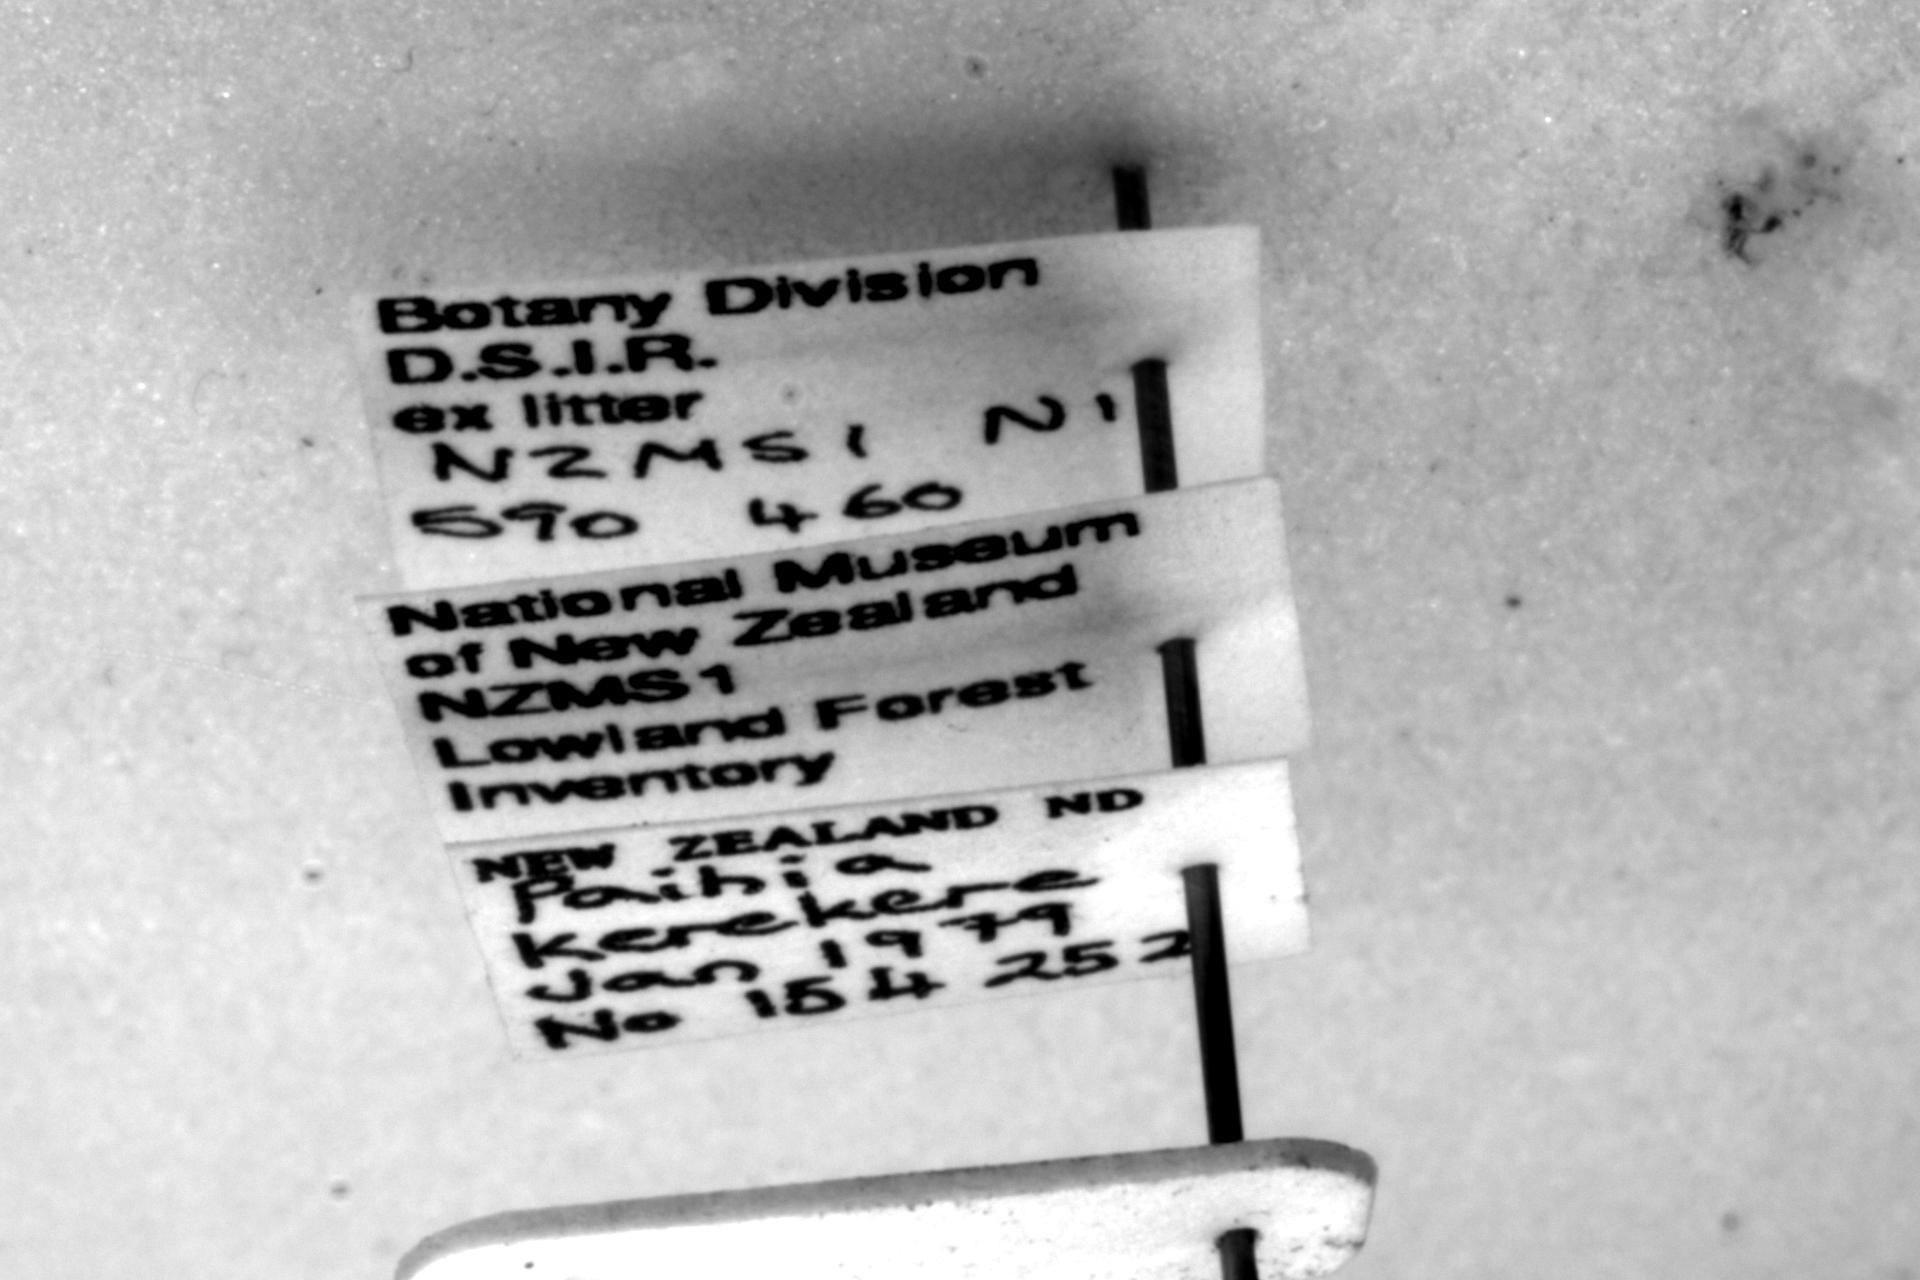 Botany Division
D.S.I.R.
ex litter
NZMS1 N1
590 460
National Museum
of New Zealand
NZMS1
Lowland Forest
Inventory
NEW ZEALAND ND
Paihia
Kerekere
Jan 1979
No 154 252